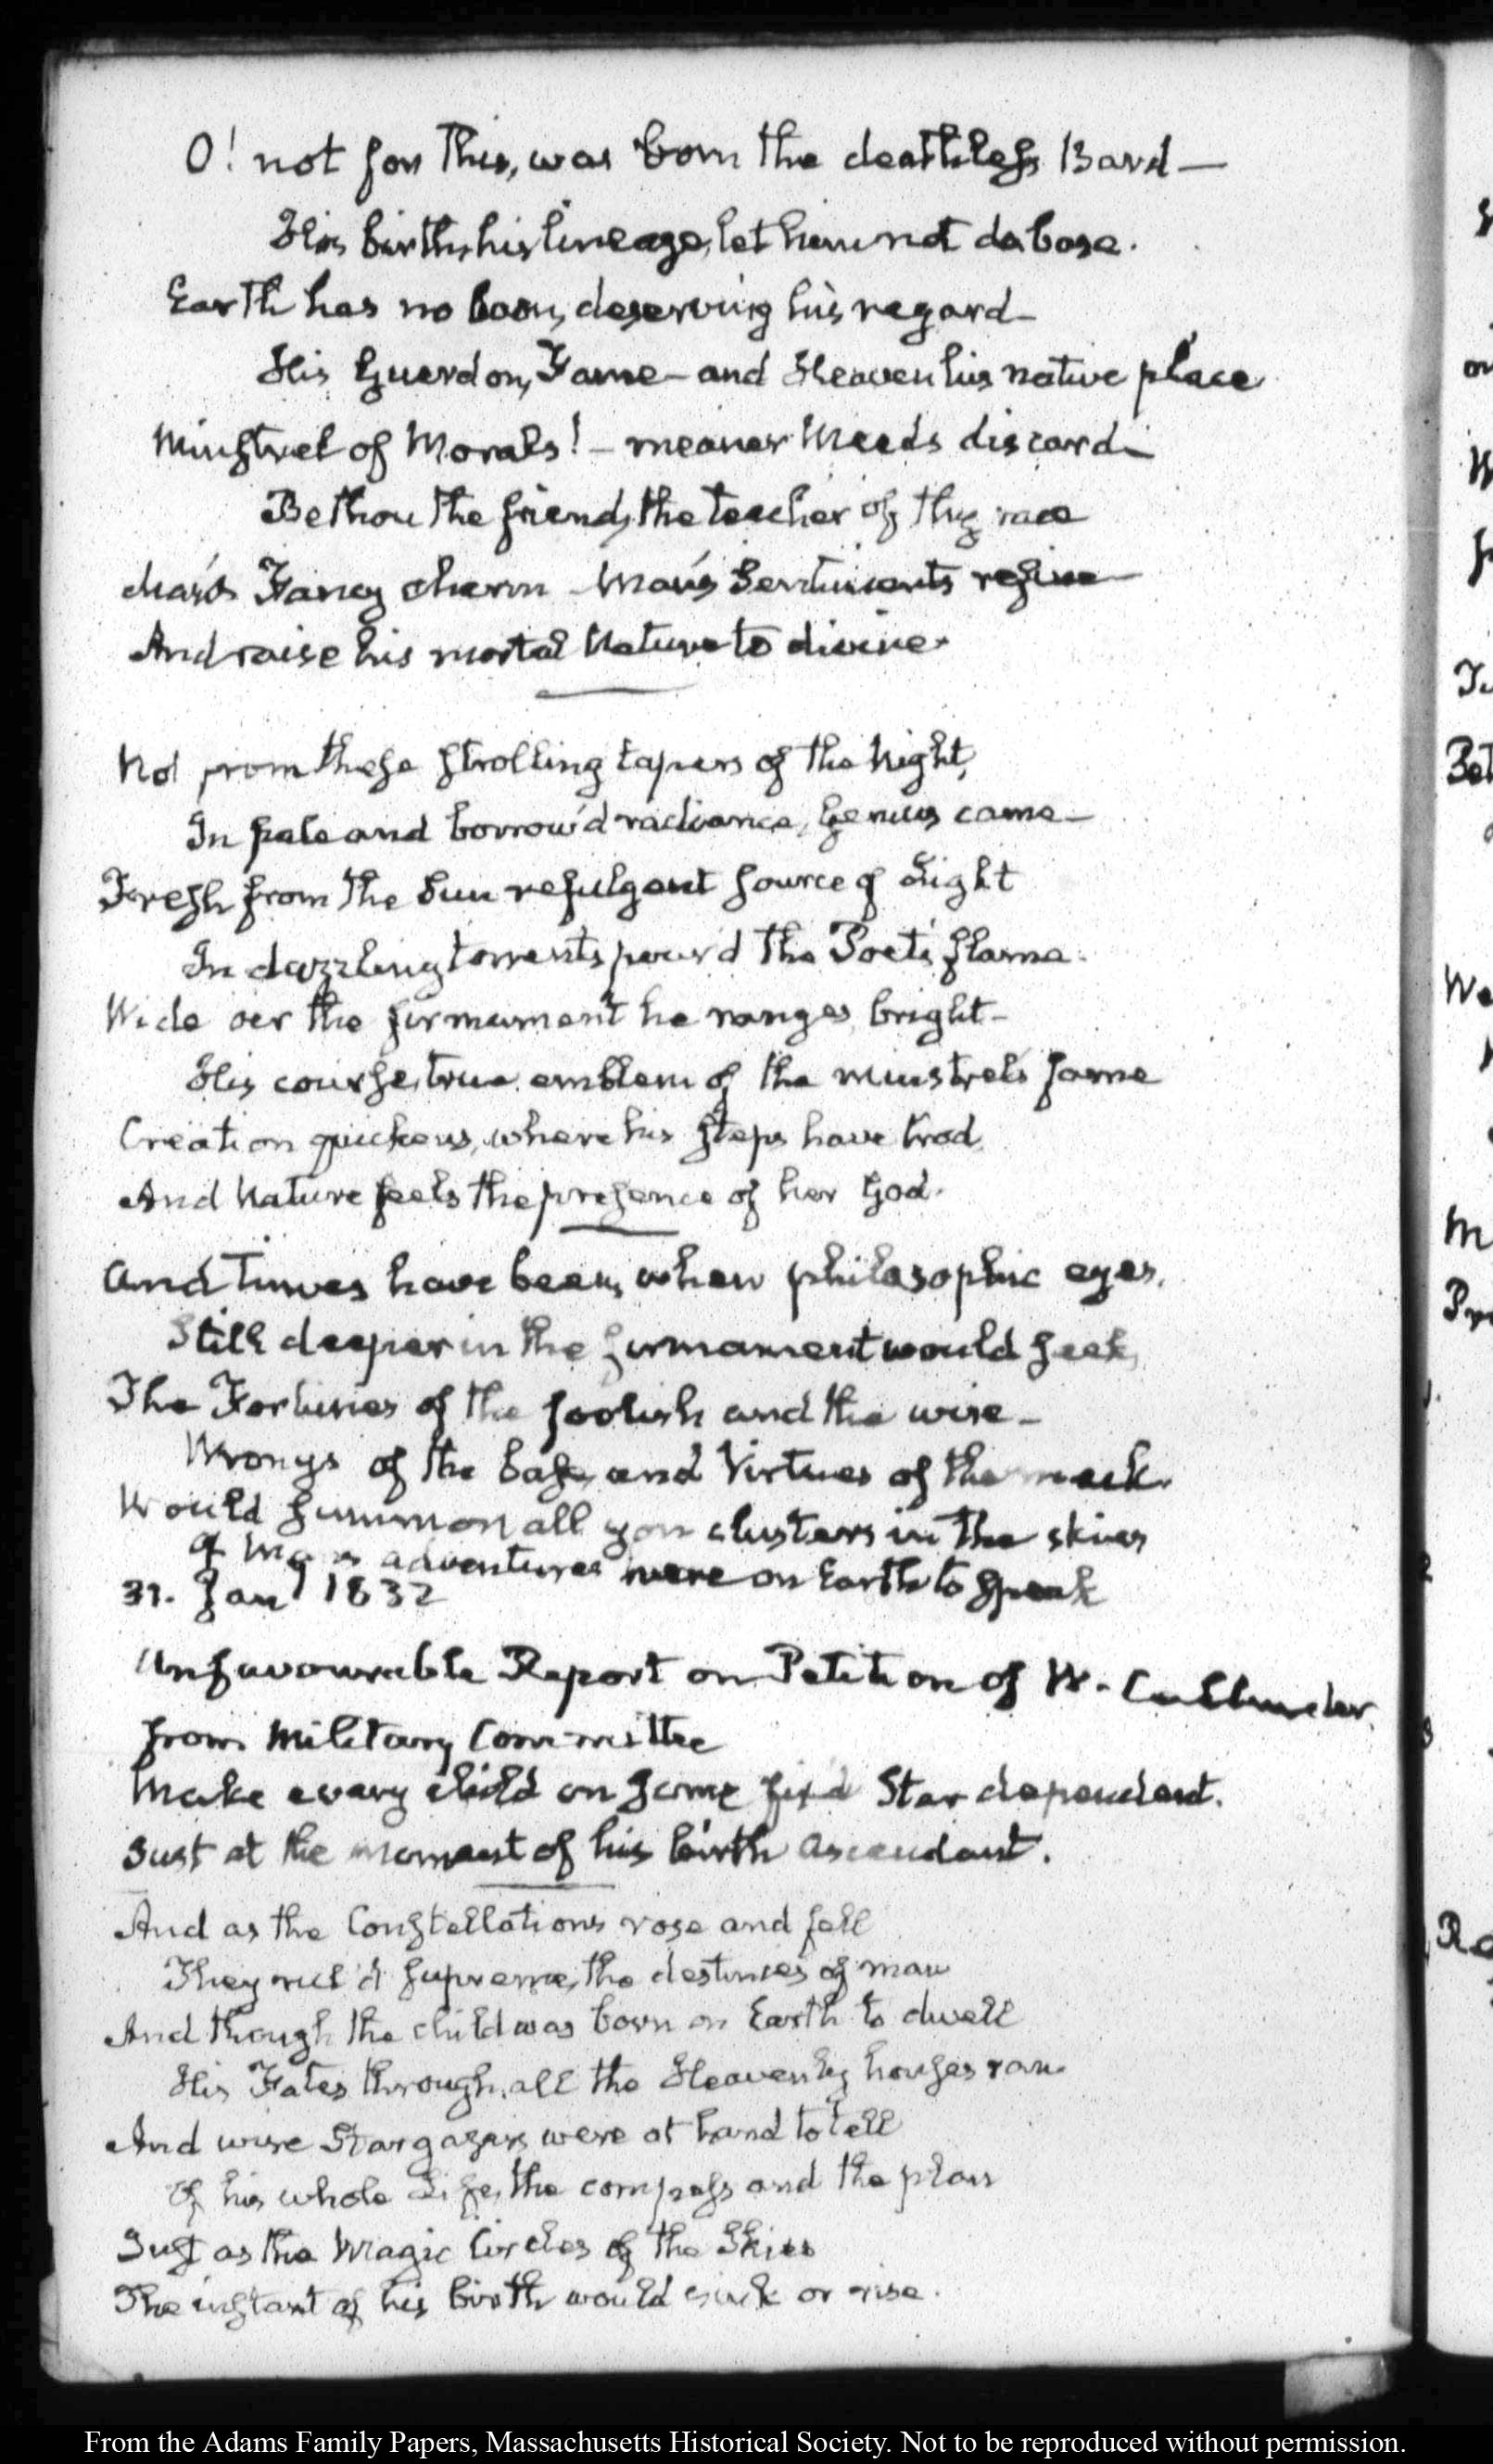 O! not for this, was born the deathless Bard—
His birth, his lineage, let him not debase.
Earth has no boon, deserving his regard—
His Guerdon, Fame—and Heaven his native place
Minstrel of Morals!—meaner Meeds discard—
Be thou the friend, the teacher of thy race
Man's Fancy charm—Man's Sentiments refine—
And raise his mortal Nature to divine.
Not from these strolling tapers of the Night,
In pale and borrow'd radiance, Genius came—
Fresh from the Sun refulgent source of Light
In dazzling torrents pour'd the Poet's flame.
Wide oer the firmament he ranges bright—
His course, true emblem of the minstrel's fame
Creation quickens, where his steps have trod,
And Nature feels the presence of her God.
And Times have been, when philosophic eyes,
Still deeper in the firmament would seek,
The Fortunes of the foolish and the wise—
Wrongs of the base, and Virtues of the meek.
Would summon all yon clusters in the skies
Of Man's adventures here on Earth to speak
31. Jany 1832
Unfavourable Report on Petition of W.
from Military Committee
Make every child on some fix'd Star dependent.
Just at the moment of his birth ascendant.
And as the Constellations rose and fell
They rul'd supreme, the destinies of man
And though the child was born on Earth to dwell
His Fates through all the Heavenly houses ran.
And wise Stargazers were at hand to tell
Of his whole Life, the compass and the plan
Just as the Magic Circles of the Skies
The instant of his birth would sink or rise.
From the Adams Family Papers, Massachusetts Historical Society. Not to be reproduced without permission.